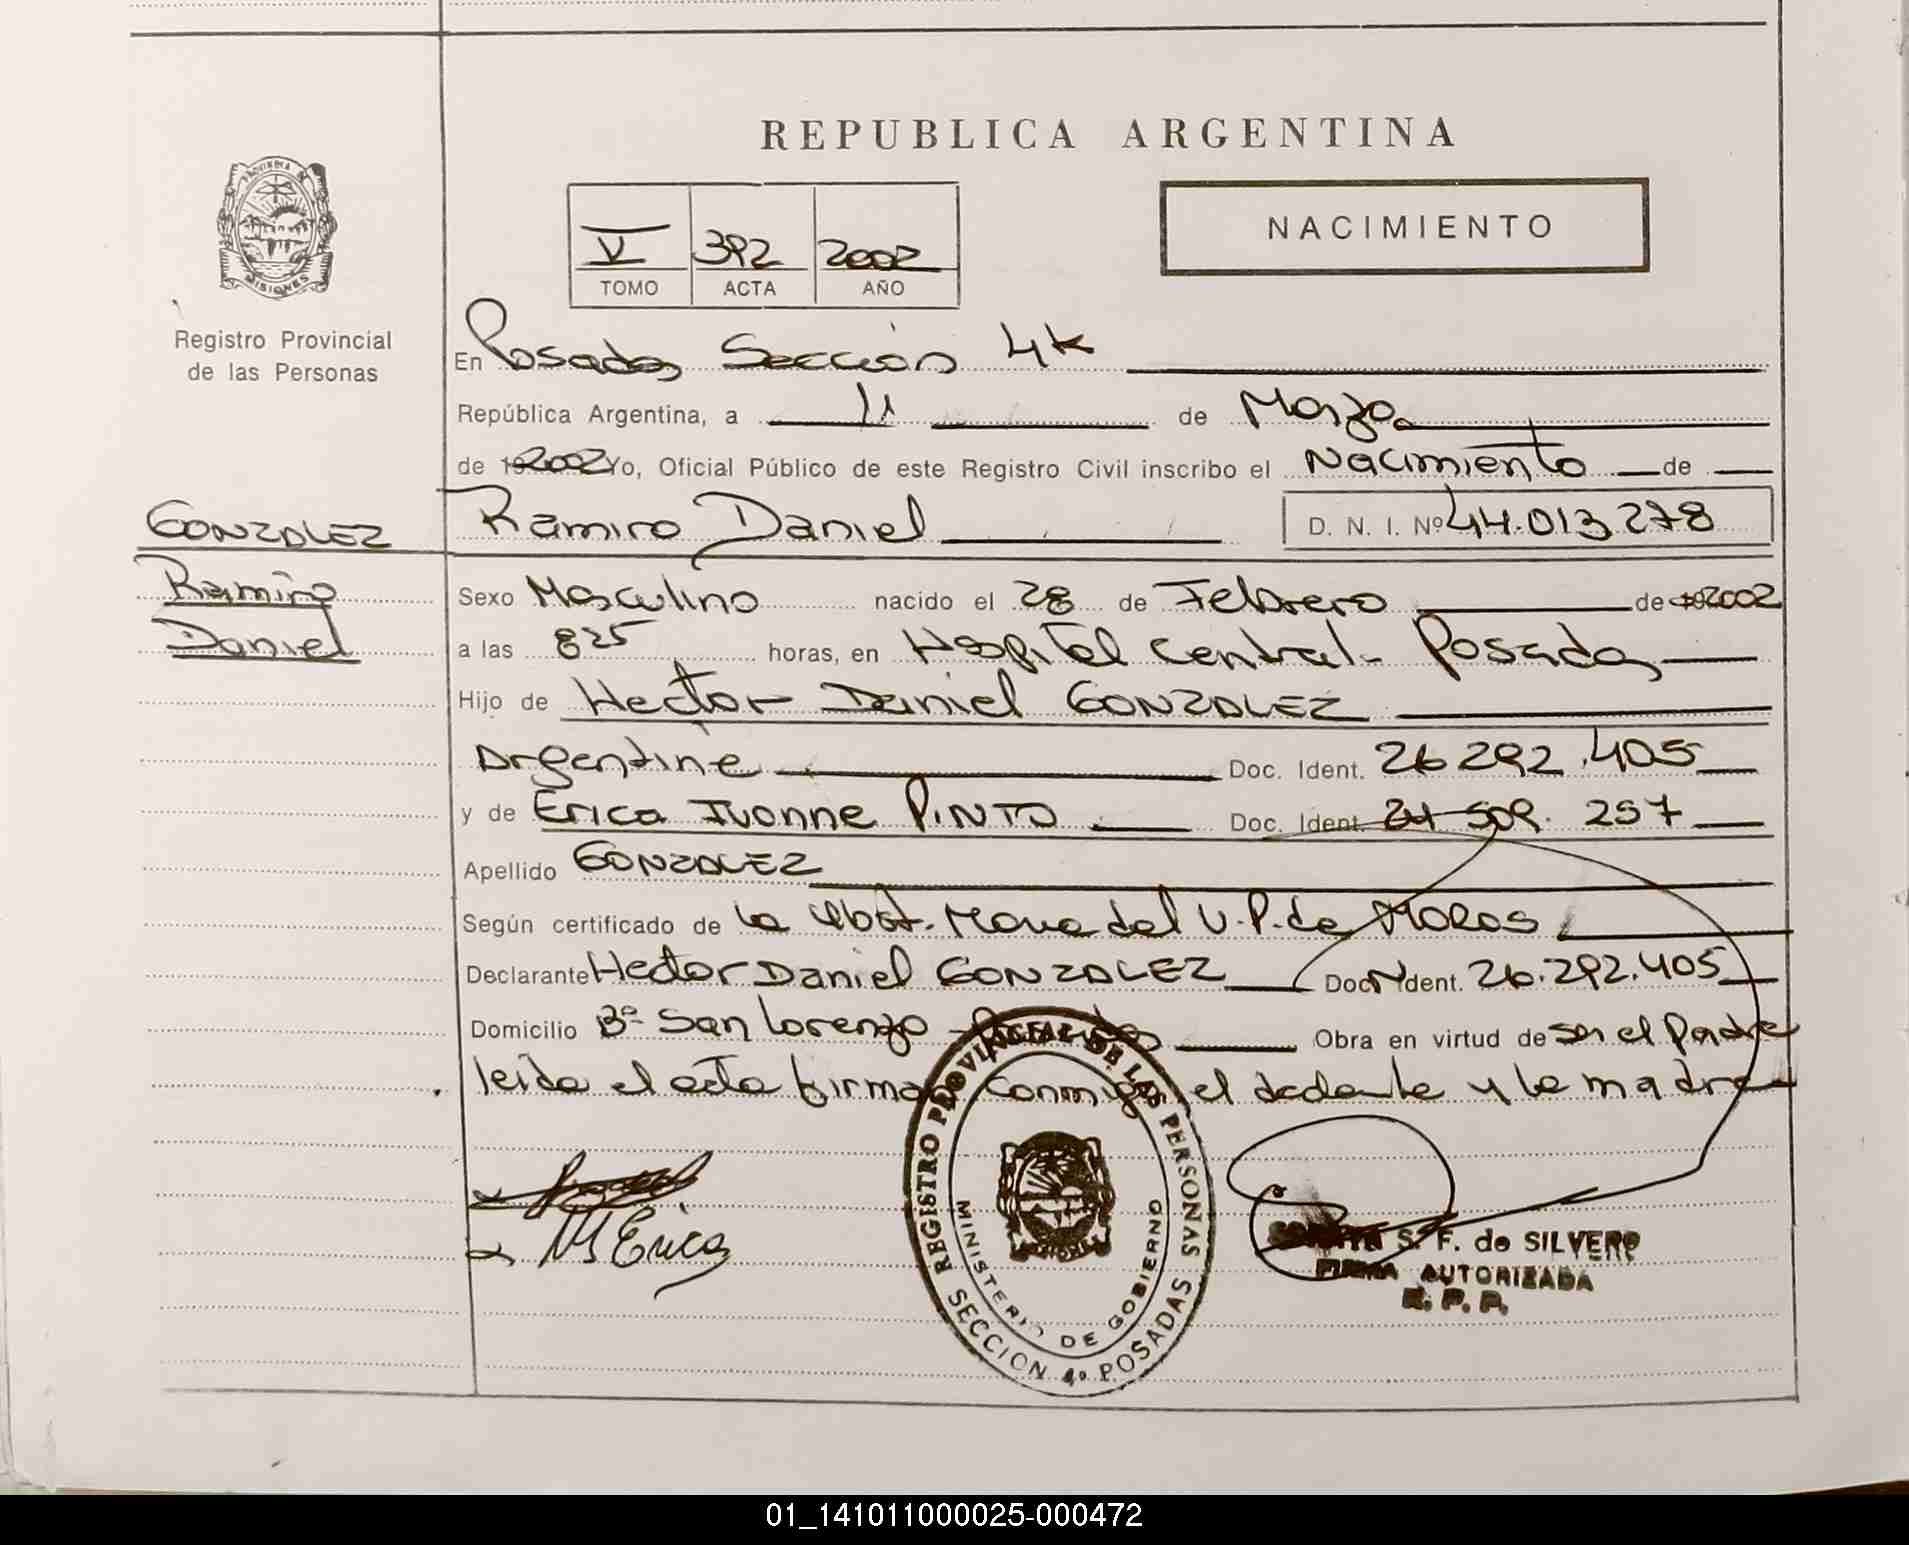 REPUBLICA ARGENTINA
PROVINCIA DE
MISIONES
Registro Provincial
de las Personas
V 392 2002
TOMO ACTA AÑO
NACIMIENTO
En Posadas Sección 4ta
República Argentina, a 11 de Marzo
de 2002 Yo, Oficial Público de este Registro Civil inscribo el Nacimiento de
GONZALEZ
Ramiro
Daniel
Ramiro Daniel D. N. I. Nº 44.013.278
Sexo Masculino nacido el 28 de Febrero de 2002
a las 8 25 horas, en Hospital Central - Posadas
Hijo de Hector Daniel GONZALEZ
Argentine Doc. Ident. 26 292.405
y de Erica Ivonne PINTO Doc. Ident. 257
Apellido GONZALEZ
Según certificado de la Obst. Maria del V. P. de
Declarante Hector Daniel GONZALEZ Doc. Ident. 26.292.405
Domicilio Bº San Lorenzo - Posadas Obra en virtud de ser el Padre
leida el acta firman conmigo el declarante y la madre
M Erica
REGISTRO PROVINCIAL DE LAS PERSONAS
MINISTERIO DE GOBIERNO
SECCION 4º POSADAS
S. F. de SILVERO
FIRMA AUTORIZADA
R. P. P.
01_141011000025-000472